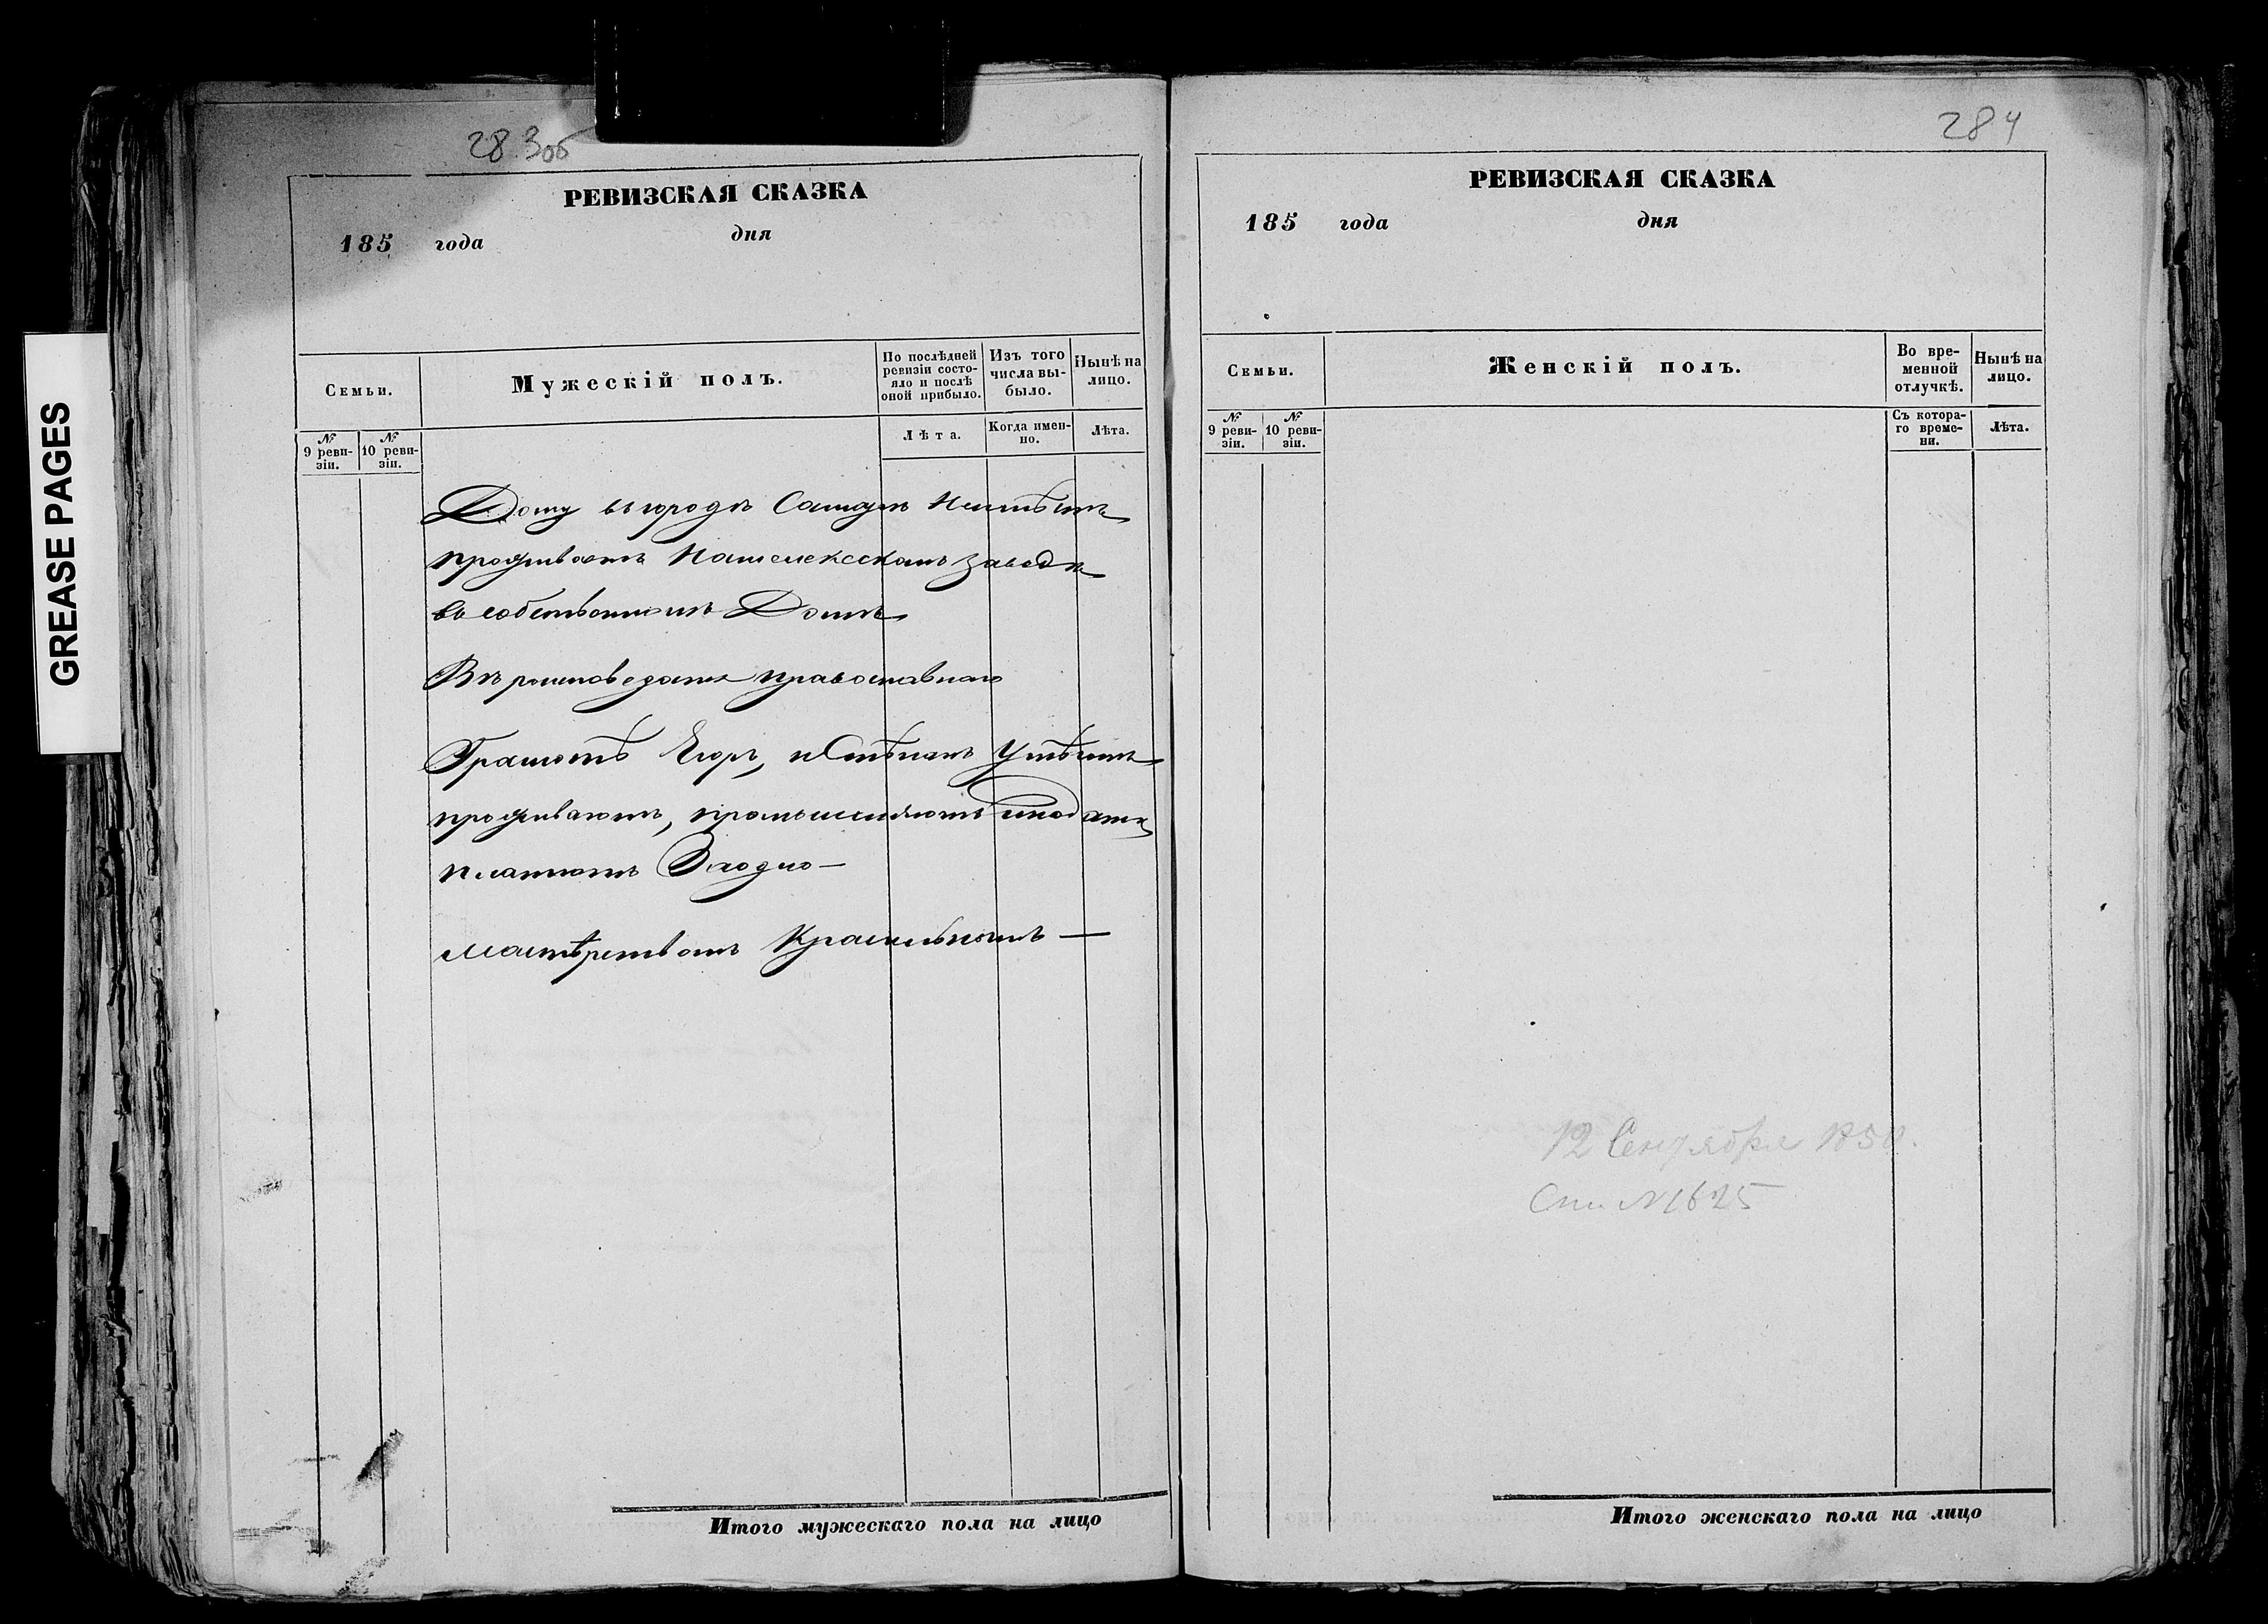 283об
РЕВИЗСКАЯ СКАЗКА
185 года дня
Семьи.
Мужескій полъ.
По послѣдней ревизіи состо-
яло и послѣ оной прибыло.
Изъ того числа вы-
было.
Нынѣ на лицо.
№ 9 реви-
зіи.
№ 10 реви-
зіи.
Лѣта.
Когда имен-
но.
Лѣта.
Дому въ городѣ
проживаютъ заводѣ
въ собственномъ Домѣ
Вѣроисповеданія православнаго
Грамотѣ Егоръ, и Степанъ умѣютъ
проживаютъ, промышляютъ иподати
платютъ Заодно —
мастерствомъ Красильнымъ —
Итого мужескаго пола на лицо
284
РЕВИЗСКАЯ СКАЗКА
185 года дня
Семьи.
Женскій полъ.
Во вре-
менной отлучкѣ.
Нынѣ на лицо.
№ 9 реви-
зіи.
№ 10 реви-
зіи.
Съ котора-
го време-
ни.
Лѣта.
12 Сентября
№ 1625
Итого женскаго пола на лицо
GREASE PAGES